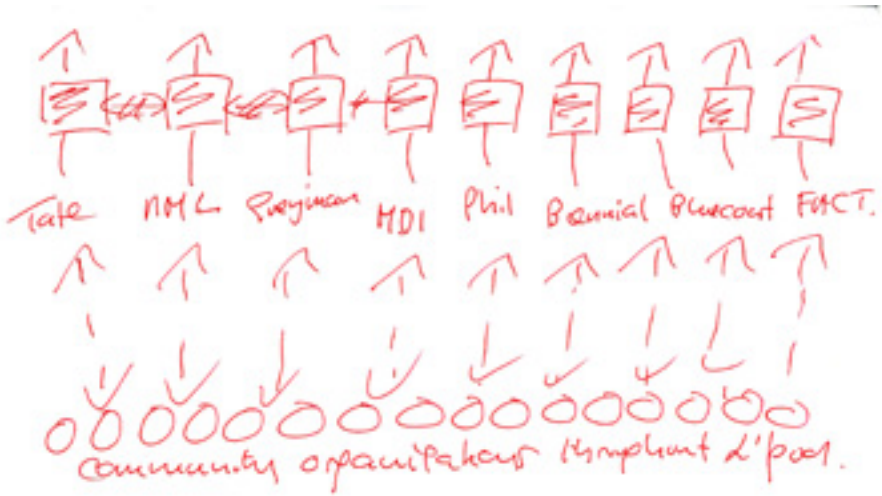 Tate NML Everyman MDI Phil Biennial Bluecoat FACT.
community organisations throughout L'pool.